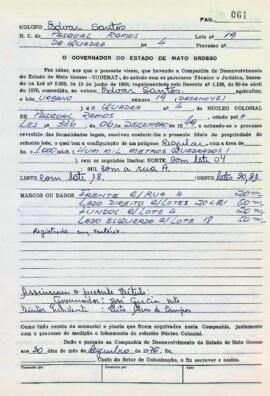 PAG. 061
COLONO Edvar Santos
N. C. de PASCOAL RAMOS Lote nº 19
DA QUADRA nº 4 Processo nº
O GOVERNADOR DO ESTADO DE MATO GROSSO
Faz saber, aos que a presente virem, que havendo a Companhia de Desenvolvimento
do Estado de Mato Grosso - CODEMAT, de acôrdo com os pareceres Técnico e Jurídico, basea-
de 1976, concedido ao colono Edvar Santos, agricultor,
o lote URBANO número 19 (DEZANOVE)
da QUADRA nº 4 do NÚCLEO COLONIAL
de PASCOAL RAMOS criado pela
LEI nº 336, de 06 de DEZEMBRO de 1949, e achando-se o processo
revestido das formalidades legais, resolveu conferir-lhe o presente título de propriedade do
referido lote, o qual tem a configuração de um polígono Regular com a área de
1000 (HUM MIL METROS QUADRADOS)
), com os seguintes limites: NORTE com lote 04
SUL com a rua A.
LESTE com lote 18. OESTE lote 20, 21.
MARCOS OU DADOS FRENTE P/RUA A 20m
LADO DIREITO P/LOTES 20 e 21 50m
FUNDOS P/LOTE 4 20m
LADO ESQUERDO P/LOTE 18 50m
Assinaram o presente Título:
Governador: José Garcia Neto
Diretor Presidente:
Como tudo consta do memorial e planta que ficam arquivados nesta Companhia, juntamente
com o processo de medição e loteamento do referido Núcleo Colonial.
Dado e passado na Companhia de Desenvolvimento do Estado de Mato Grosso
aos 30 dias do mês de dezembro de 1976. Eu,
Chefe do Setor de Colonização, o fiz escrever e assino.
Transcrito por Conferido por Visto